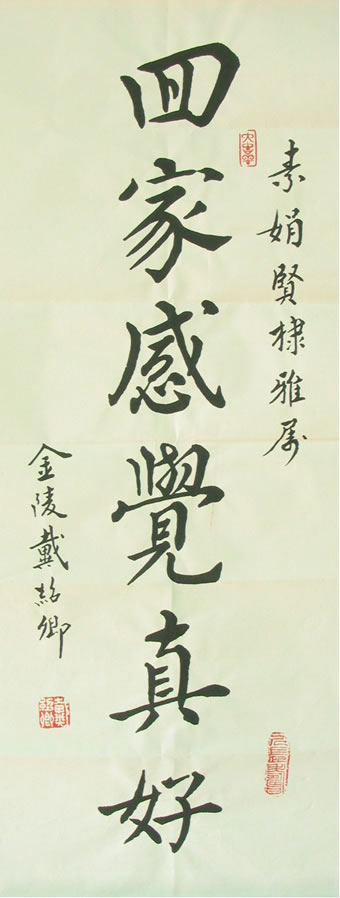 素娟賢棣雅属
回家感覺真好
金陵戴紹卿